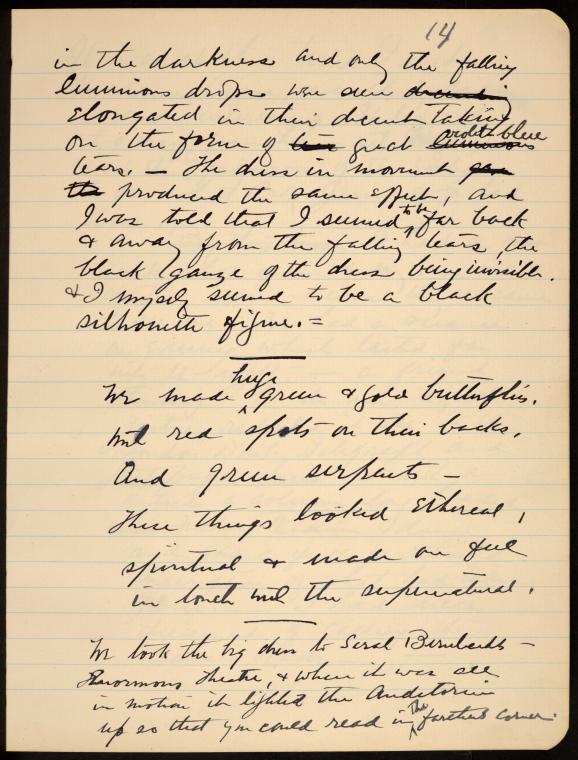 14
in the darkness and only the falling
luminous drops were seen
elongated in their decent taking
on the form of great violet blue
tears. — The dress in movement
produced the same effect, and
I was told that I seemed to be far back
& away from the falling tears, the
black gauze of the dress being invisible.
& I myself seemed to be a black
silhouette figure. =
We made huge green & gold butterflies.
with red spots on their backs.
And green serpents —
These things looked Ethereal,
spiritual & made one feel
in touch with the supernatural.
We took the big dress to Sarah Bernhardts —
Enormous Theatre, & when it was all
in motion it lighted the Auditorium
up so that you could read in The farthest corner.